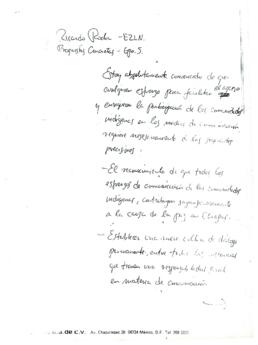 Ricardo Rocha - EZLN.
Propuestas Concretas - Gpo. 5.
Estoy absolutamente convencido de que
cualquier esfuerzo para facilitar el acceso
y enriquecer la participación de las comunidades
indígenas en los medios de comunicación
requiere necesariamente de las siguientes
precisiones:
- El reconocimiento de que todos los
esfuerzos de comunicación de las comunidades
indígenas, contribuyen
a la causa de la paz en Chiapas.
- Establecer una nueva cultura de diálogo
permanente, entre todas las
que tienen una responsabilidad social
en materia de comunicación
de C.V. Av. Chapultepec 28 06724 México, D.F. Tel